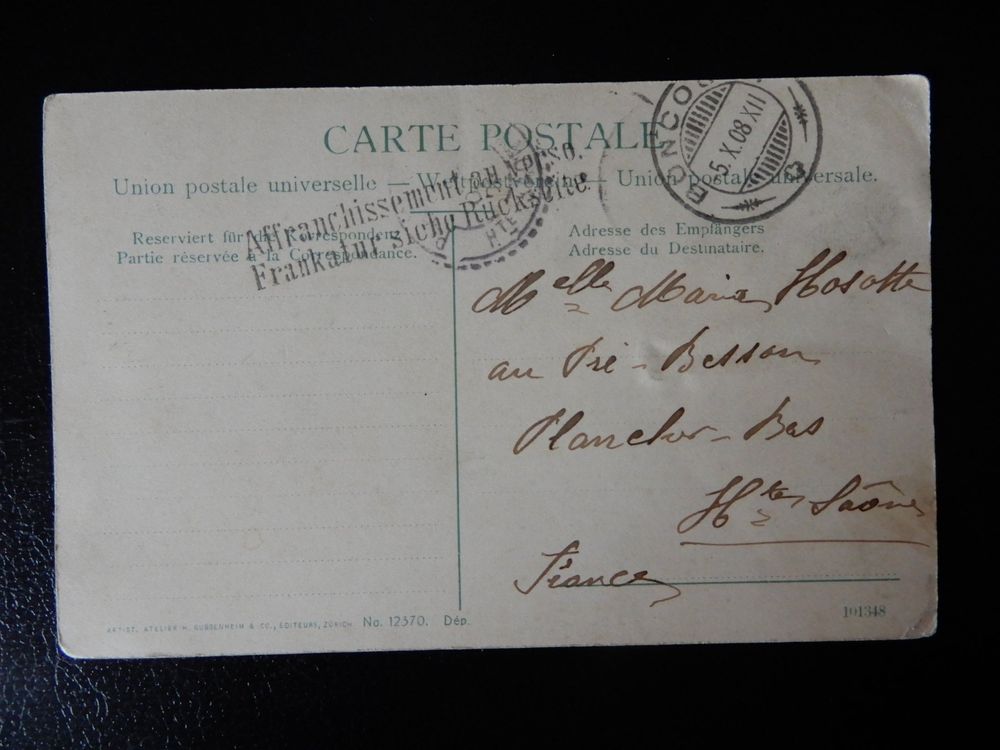 CARTE POSTALE
Union postale universelle — Weltpostverein — Union postale universale.
Affranchissement au verso.
Frankatur siehe Rückseite
BONCO
5.X.08 XII
HTE
Reserviert für die Correspondenz
Partie réservée à la Correspondance.
Adresse des Empfängers
Adresse du Destinataire.
Melle Maria Hosotte
au Pré-Besson
Plancher-Bas
Hte Saône
France
101348
ARTIST. ATELIER H. GUGGENHEIM & CO., EDITEURS, ZÜRICH No. 12370. Dép.